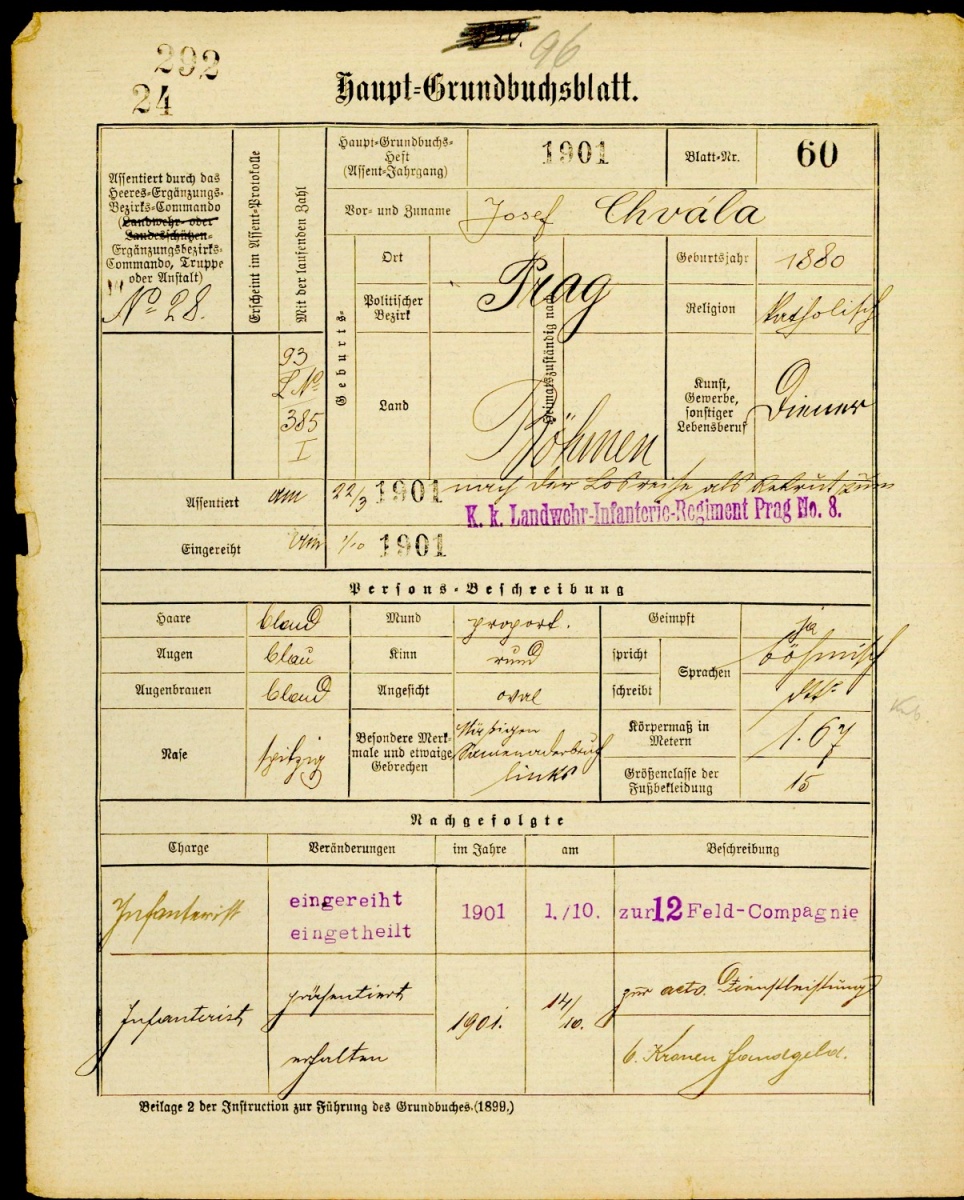 96
292
24
Haupt-Grundbuchsblatt.
Assentiert durch das
Heeres-Ergänzungs-
Bezirks-Commando
(Landwehr- oder
Landesschützen-
Ergänzungsbezirks-
Commando, Truppe
oder Anstalt)
No 28.
Erscheint im Assent-Protokolle
Mit der laufenden Zahl
93
L No
385
I
Haupt-Grundbuchs-
Heft
(Assent-Jahrgang)
1901
Blatt-Nr.
60
Vor- und Zuname
Josef Chvála
Geburts-
Ort
Politischer
Bezirk
Land
Heimatszuständig nach
Prag
Böhmen
Geburtsjahr
1880
Religion
katholisch
Kunst,
Gewerbe,
sonstiger
Lebensberuf
Diener
Assentiert
am
22/3 1901 nach der Losreihe als Rekrut zum
K. k. Landwehr-Infanterie-Regiment Prag No. 8.
Eingereiht
am
1/10 1901
Persons-Beschreibung
Haare
blond
Mund
proport.
Geimpft
ja
Augen
blau
Kinn
rund
spricht
Sprachen
böhmisch
Augenbrauen
blond
Angesicht
oval
schreibt
dtto
Nase
spitzig
Besondere Merk-
male und etwaige
Gebrechen
Mäßigen
Samenaderbruch
links
Körpermaß in
Metern
1.67
Größenclasse der
Fußbekleidung
15
Nachgefolgte
Charge
Veränderungen
im Jahre
am
Beschreibung
Infanterist
eingereiht
eingetheilt
1901
1./10.
zur 12 Feld-Compagnie
Infanterist
präsentiert
1901.
14/10.
zur activ. Dienstleistung
erhalten
6. Kronen Handgeld.
Beilage 2 der Instruction zur Führung des Grundbuches. (1899.)